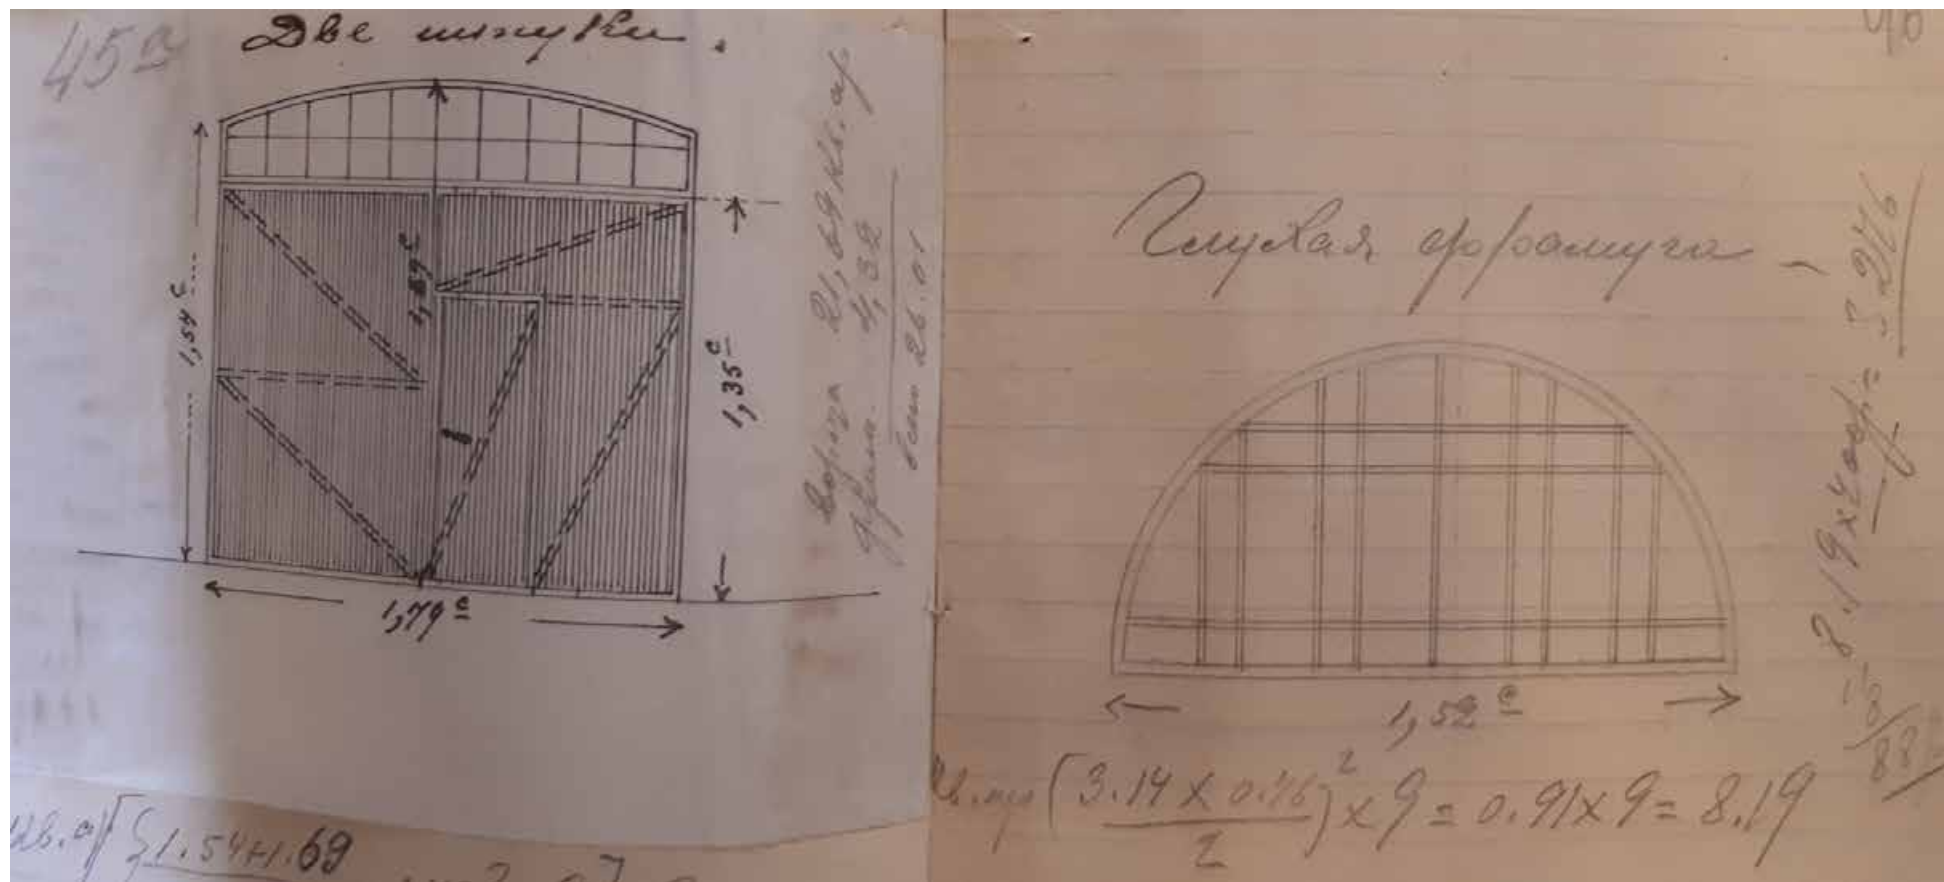 45а
Две штуки.
1,54 с
1,69 с
1,35 с
1,79 с
Ворота 21,69 кв. ар
фрам. 4,32
26.01
1.54+1.69
Глухая фрамуга
1,52 с
(3.14 x 0.76)² x 9 = 0.91 x 9 = 8.19
2
8.19 x 400 = 3276